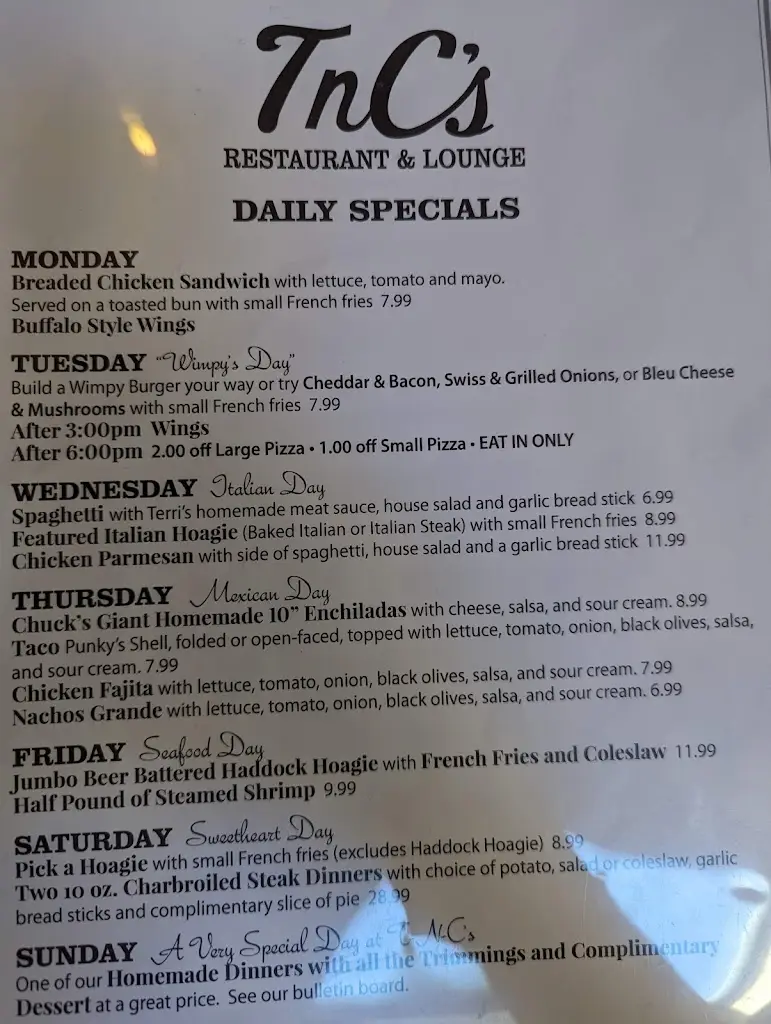 TnC's
RESTAURANT & LOUNGE
DAILY SPECIALS
MONDAY
Breaded Chicken Sandwich with lettuce, tomato and mayo.
Served on a toasted bun with small French fries 7.99
Buffalo Style Wings
TUESDAY "Wimpy's Day"
Build a Wimpy Burger your way or try Cheddar & Bacon, Swiss & Grilled Onions, or Bleu Cheese
& Mushrooms with small French fries 7.99
After 3:00pm Wings
After 6:00pm 2.00 off Large Pizza • 1.00 off Small Pizza • EAT IN ONLY
WEDNESDAY Italian Day
Spaghetti with Terri's homemade meat sauce, house salad and garlic bread stick 6.99
Featured Italian Hoagie (Baked Italian or Italian Steak) with small French fries 8.99
Chicken Parmesan with side of spaghetti, house salad and a garlic bread stick 11.99
THURSDAY Mexican Day
Chuck's Giant Homemade 10" Enchiladas with cheese, salsa, and sour cream. 8.99
Taco Punky's Shell, folded or open-faced, topped with lettuce, tomato, onion, black olives, salsa,
and sour cream. 7.99
Chicken Fajita with lettuce, tomato, onion, black olives, salsa, and sour cream. 7.99
Nachos Grande with lettuce, tomato, onion, black olives, salsa, and sour cream. 6.99
FRIDAY Seafood Day
Jumbo Beer Battered Haddock Hoagie with French Fries and Coleslaw 11.99
Half Pound of Steamed Shrimp 9.99
SATURDAY Sweetheart Day
Pick a Hoagie with small French fries (excludes Haddock Hoagie) 8.99
Two 10 oz. Charbroiled Steak Dinners with choice of potato, salad or coleslaw, garlic
bread sticks and complimentary slice of pie 28.99
SUNDAY A Very Special Day at T N C's
One of our Homemade Dinners with all the Trimmings and Complimentary
Dessert at a great price. See our bulletin board.